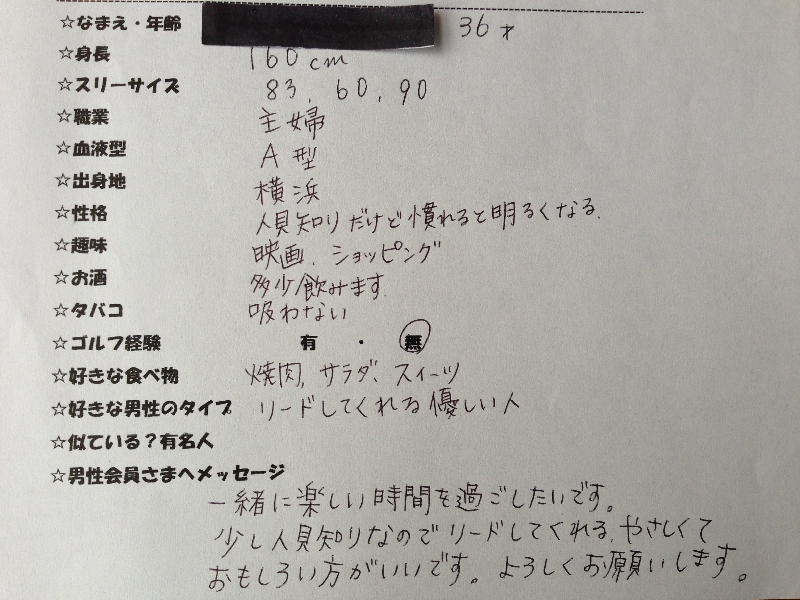 ☆なまえ・年齢 36才
☆身長 160cm
☆スリーサイズ 83, 60, 90
☆職業 主婦
☆血液型 A型
☆出身地 横浜
☆性格 人見知りだけど慣れると明るくなる.
☆趣味 映画、ショッピング
☆お酒 多少飲みます.
☆タバコ 吸わない
☆ゴルフ経験 有 ・ 無
☆好きな食べ物 焼肉, サラダ、スイーツ
☆好きな男性のタイプ リードしてくれる優しい人
☆似ている?有名人
☆男性会員さまへメッセージ
一緒に楽しい時間を過ごしたいです。
少し人見知りなのでリードしてくれる、やさしくて
おもしろい方がいいです。よろしくお願いします。